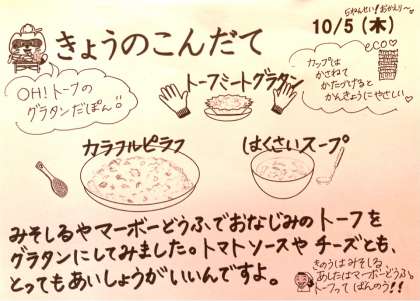 5ねんせい!おかえり〜。
きょうのこんだて
10/5(木)
OH!トーフの
グラタンだぽん。
eco♡
カップは
かさねて
かたづけると
かんきょうにやさしい♡
トーフミートグラタン
カラフルピラフ
はくさいスープ
みそしるやマーボーどうふでおなじみのトーフを
グラタンにしてみました。トマトソースやチーズとも、
とってもあいしょうがいいんですよ。
きのうはみそしる、
あしたはマーボーどうふ。
トーフって ばんのう!!